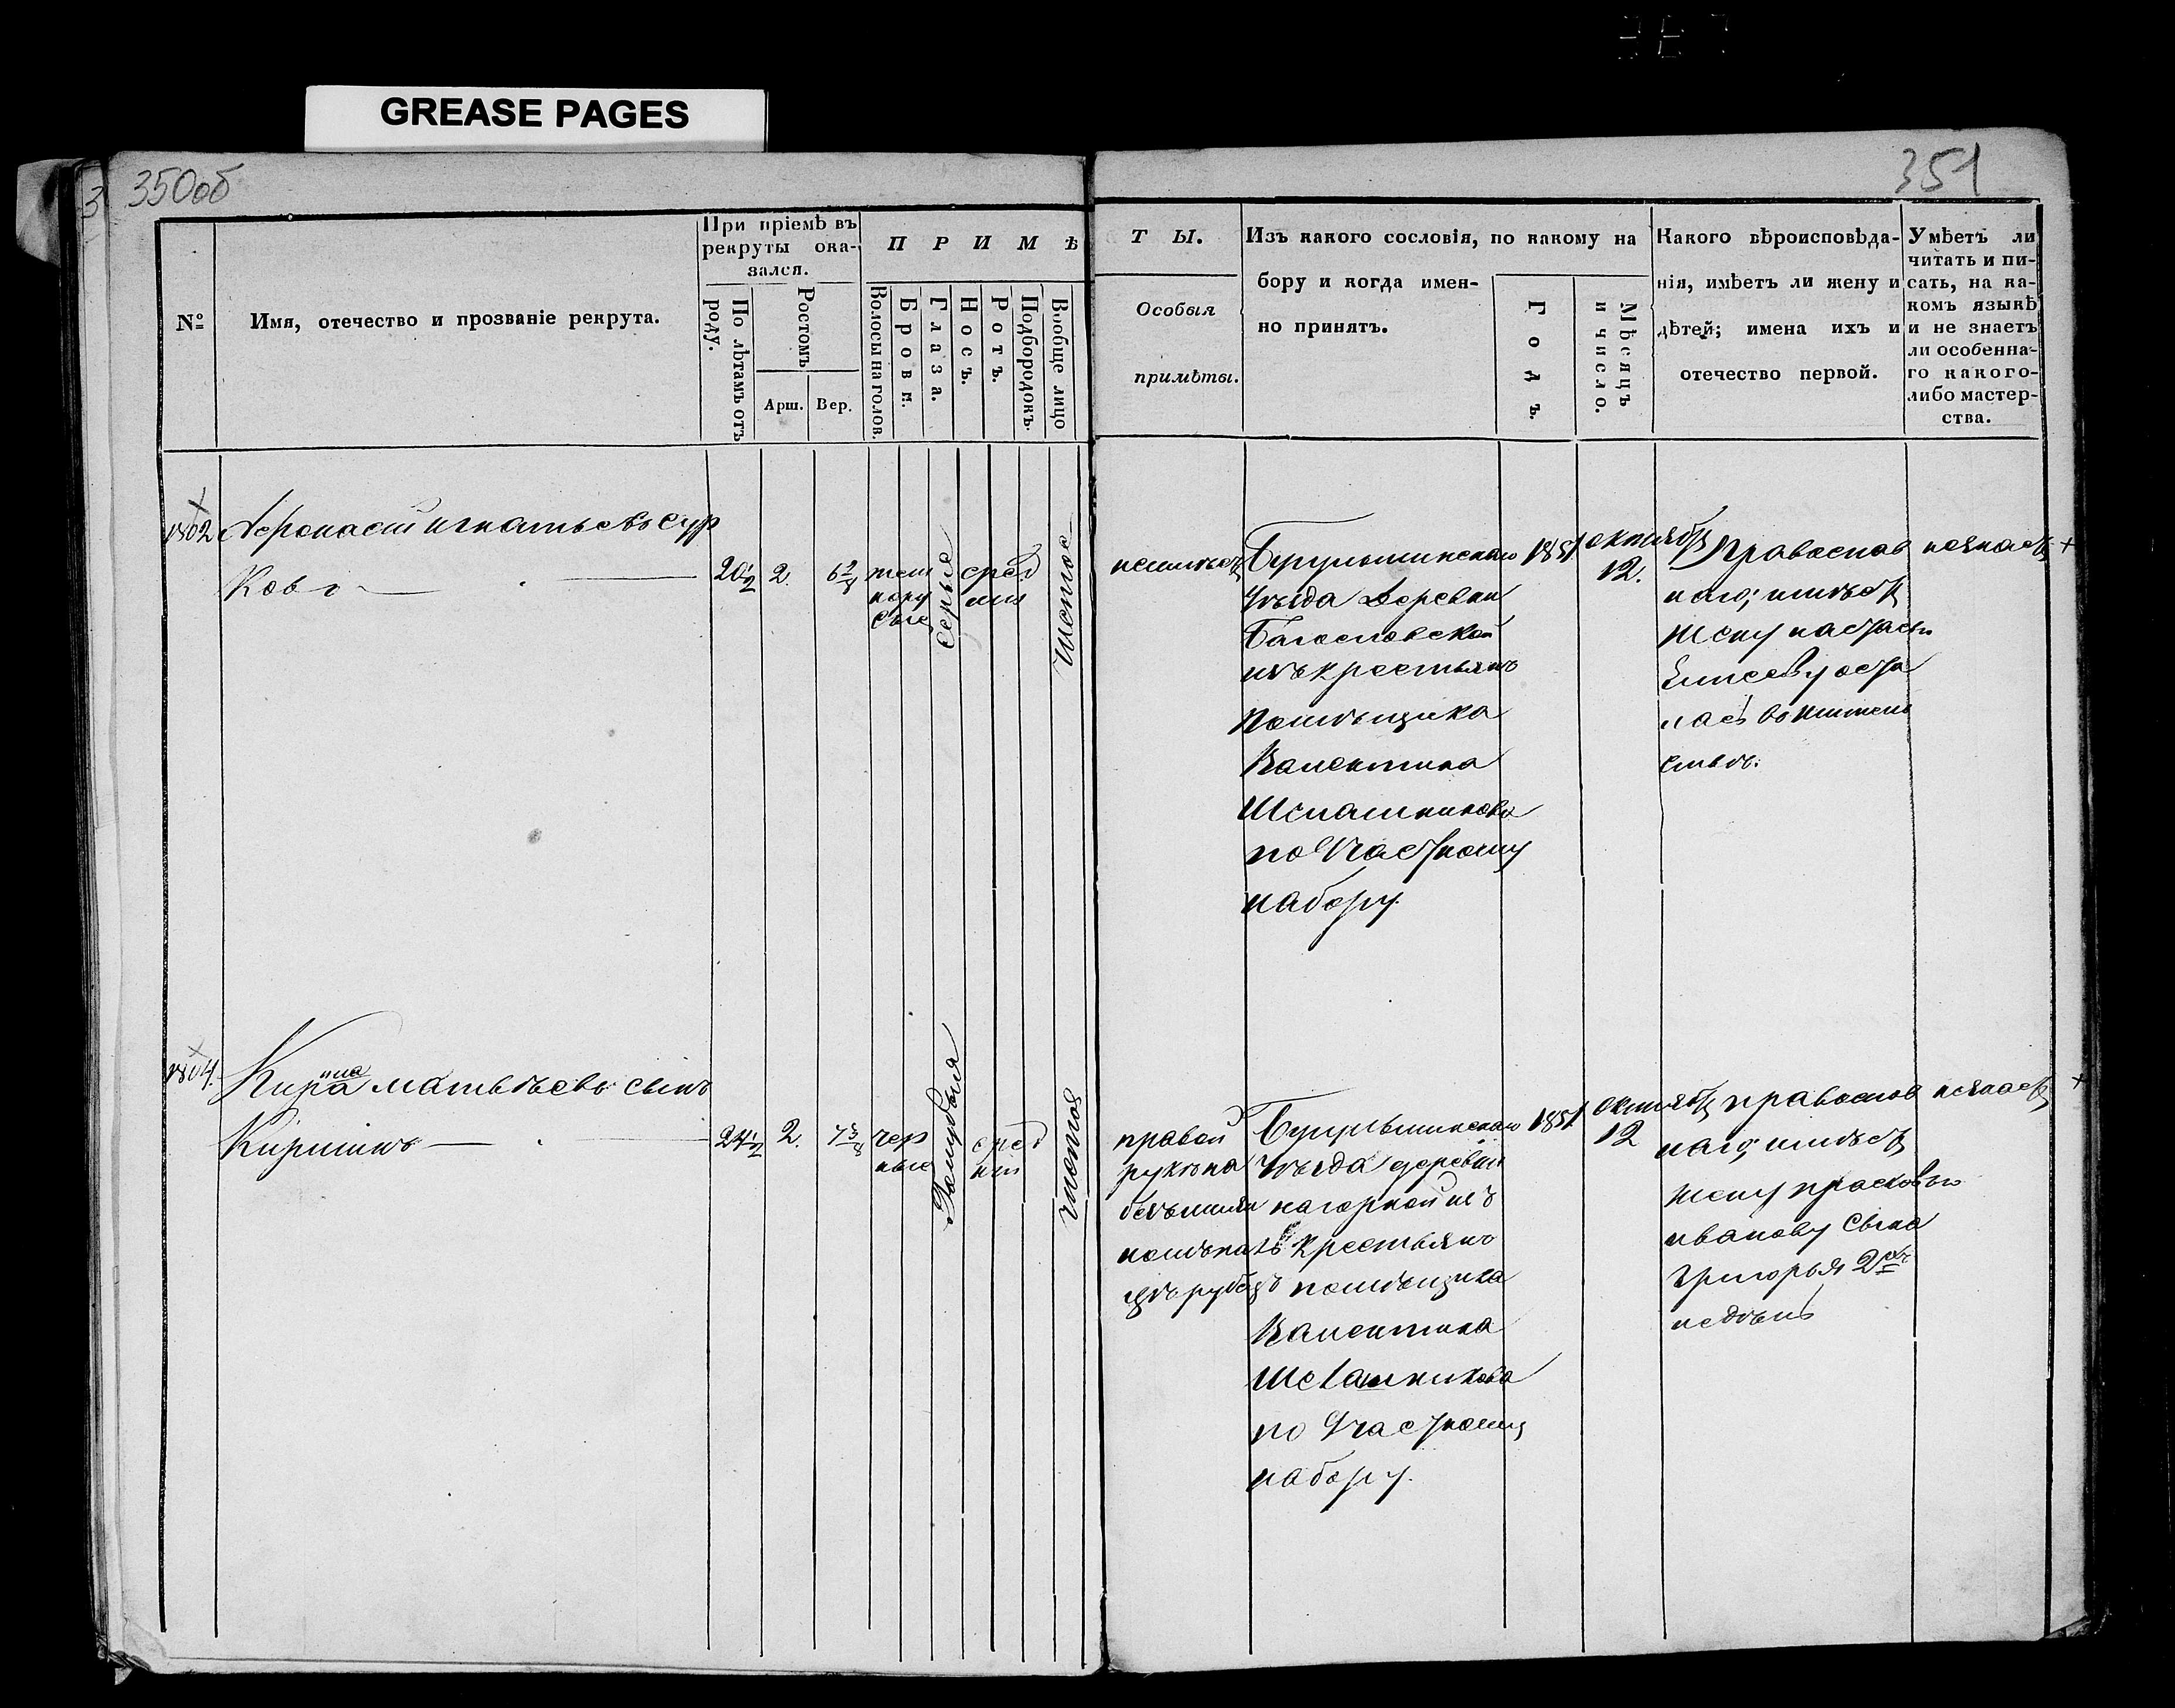 GREASE PAGES
350об
351
№
Имя, отечество и прозваніе рекрута.
При пріемѣ въ
рекруты ока-
зался.
По лѣтамъ отъ
роду.
Ростомъ
Арш.
Вер.
П Р И М Ѣ
Волосы на голов.
Брови.
Глаза.
Носъ.
Ротъ.
Подбородокъ.
Вообще лицо
Т Ы.
Особыя
примѣты.
Изъ какого сословія, по какому на
бору и когда имен-
но принятъ.
Годъ.
Мѣсяцъ
и число.
Какого вѣроисповѣда-
нія, имѣетъ ли жену и
дѣтей; имена ихъ и
отечество первой.
Умѣетъ ли
читать и пи-
сать, на ка-
комъ языкѣ
и не знаетъ
ли особенна-
го какого-
либо мастер-
ства.
игнатьевъ Сур
ковъ
20½
2.
6 2/8
тем
нору
сые
серые
сред
нія
чистое
неимѣетъ
Бугульминскаго
Уѣзда Деревни
Богословской
изъ крестьянъ
Помѣщика
Валентина
по Частному
набору.
1851
октября
12.
Православ
наго; имѣетъ
жену настасью
Елисееву оста
лась вожитель
ствѣ.
незнаетъ
1804.
матвѣевъ сынъ
Киршинъ
24½
2.
7 3/8
чер
ные
Голубыя
сред
ніи
чистоя
правой
рукѣ на
безъимян
номъ паль
цѣ рубецъ
Бугульминскаго
Уѣзда деревни
нагорной изъ
крестьянъ
помѣщика
Валентина
по Частному
набору.
1851
Октября
12
православ
наго; имѣетъ
жену прасковью
иванову Сына
григорья 2хъ
недѣль
незнаетъ